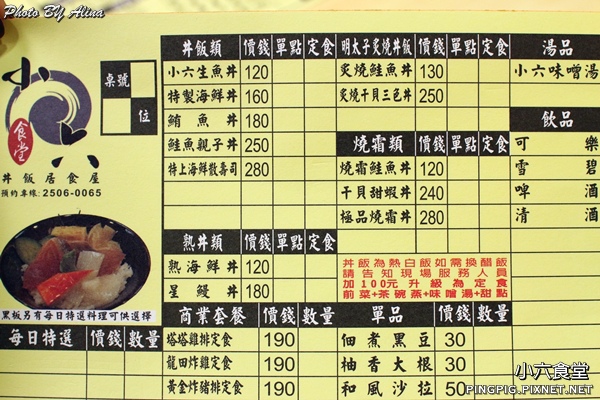 Photo BY Alina
小六
食堂
丼飯居食屋
預約專線: 2506-0065
桌號
位
黑板另有每日特選料理可供選擇
每日特選 價錢 數量
丼飯類 價錢 單點 定食
小六生魚丼 120
特製海鮮丼 160
鮪魚丼 180
鮭魚親子丼 250
特上海鮮散壽司 280
熱丼類 價錢 單點 定食
熱海鮮丼 120
星鰻丼 180
商業套餐 價錢 數量
塔塔雞排定食 190
龍田炸雞定食 190
黃金炸豬排定食 190
明太子炙燒丼飯 價錢 單點 定食
炙燒鮭魚丼 130
炙燒干貝三色丼 250
燒霜類 價錢 單點 定食
燒霜鮭魚丼 160
干貝甜蝦丼 240
極品燒霜丼 280
丼飯為熱白飯如需換醋飯
請告知現場服務人員
加100元升級為定食
前菜+茶碗蒸+味噌湯+甜點
單品 價錢 數量
佃煮黑豆 30
柚香大根 30
和風沙拉 50
湯品
小六味噌湯
飲品
可樂
雪碧
啤酒
清酒
小六食堂
PINGPIG.PIXNET.NET